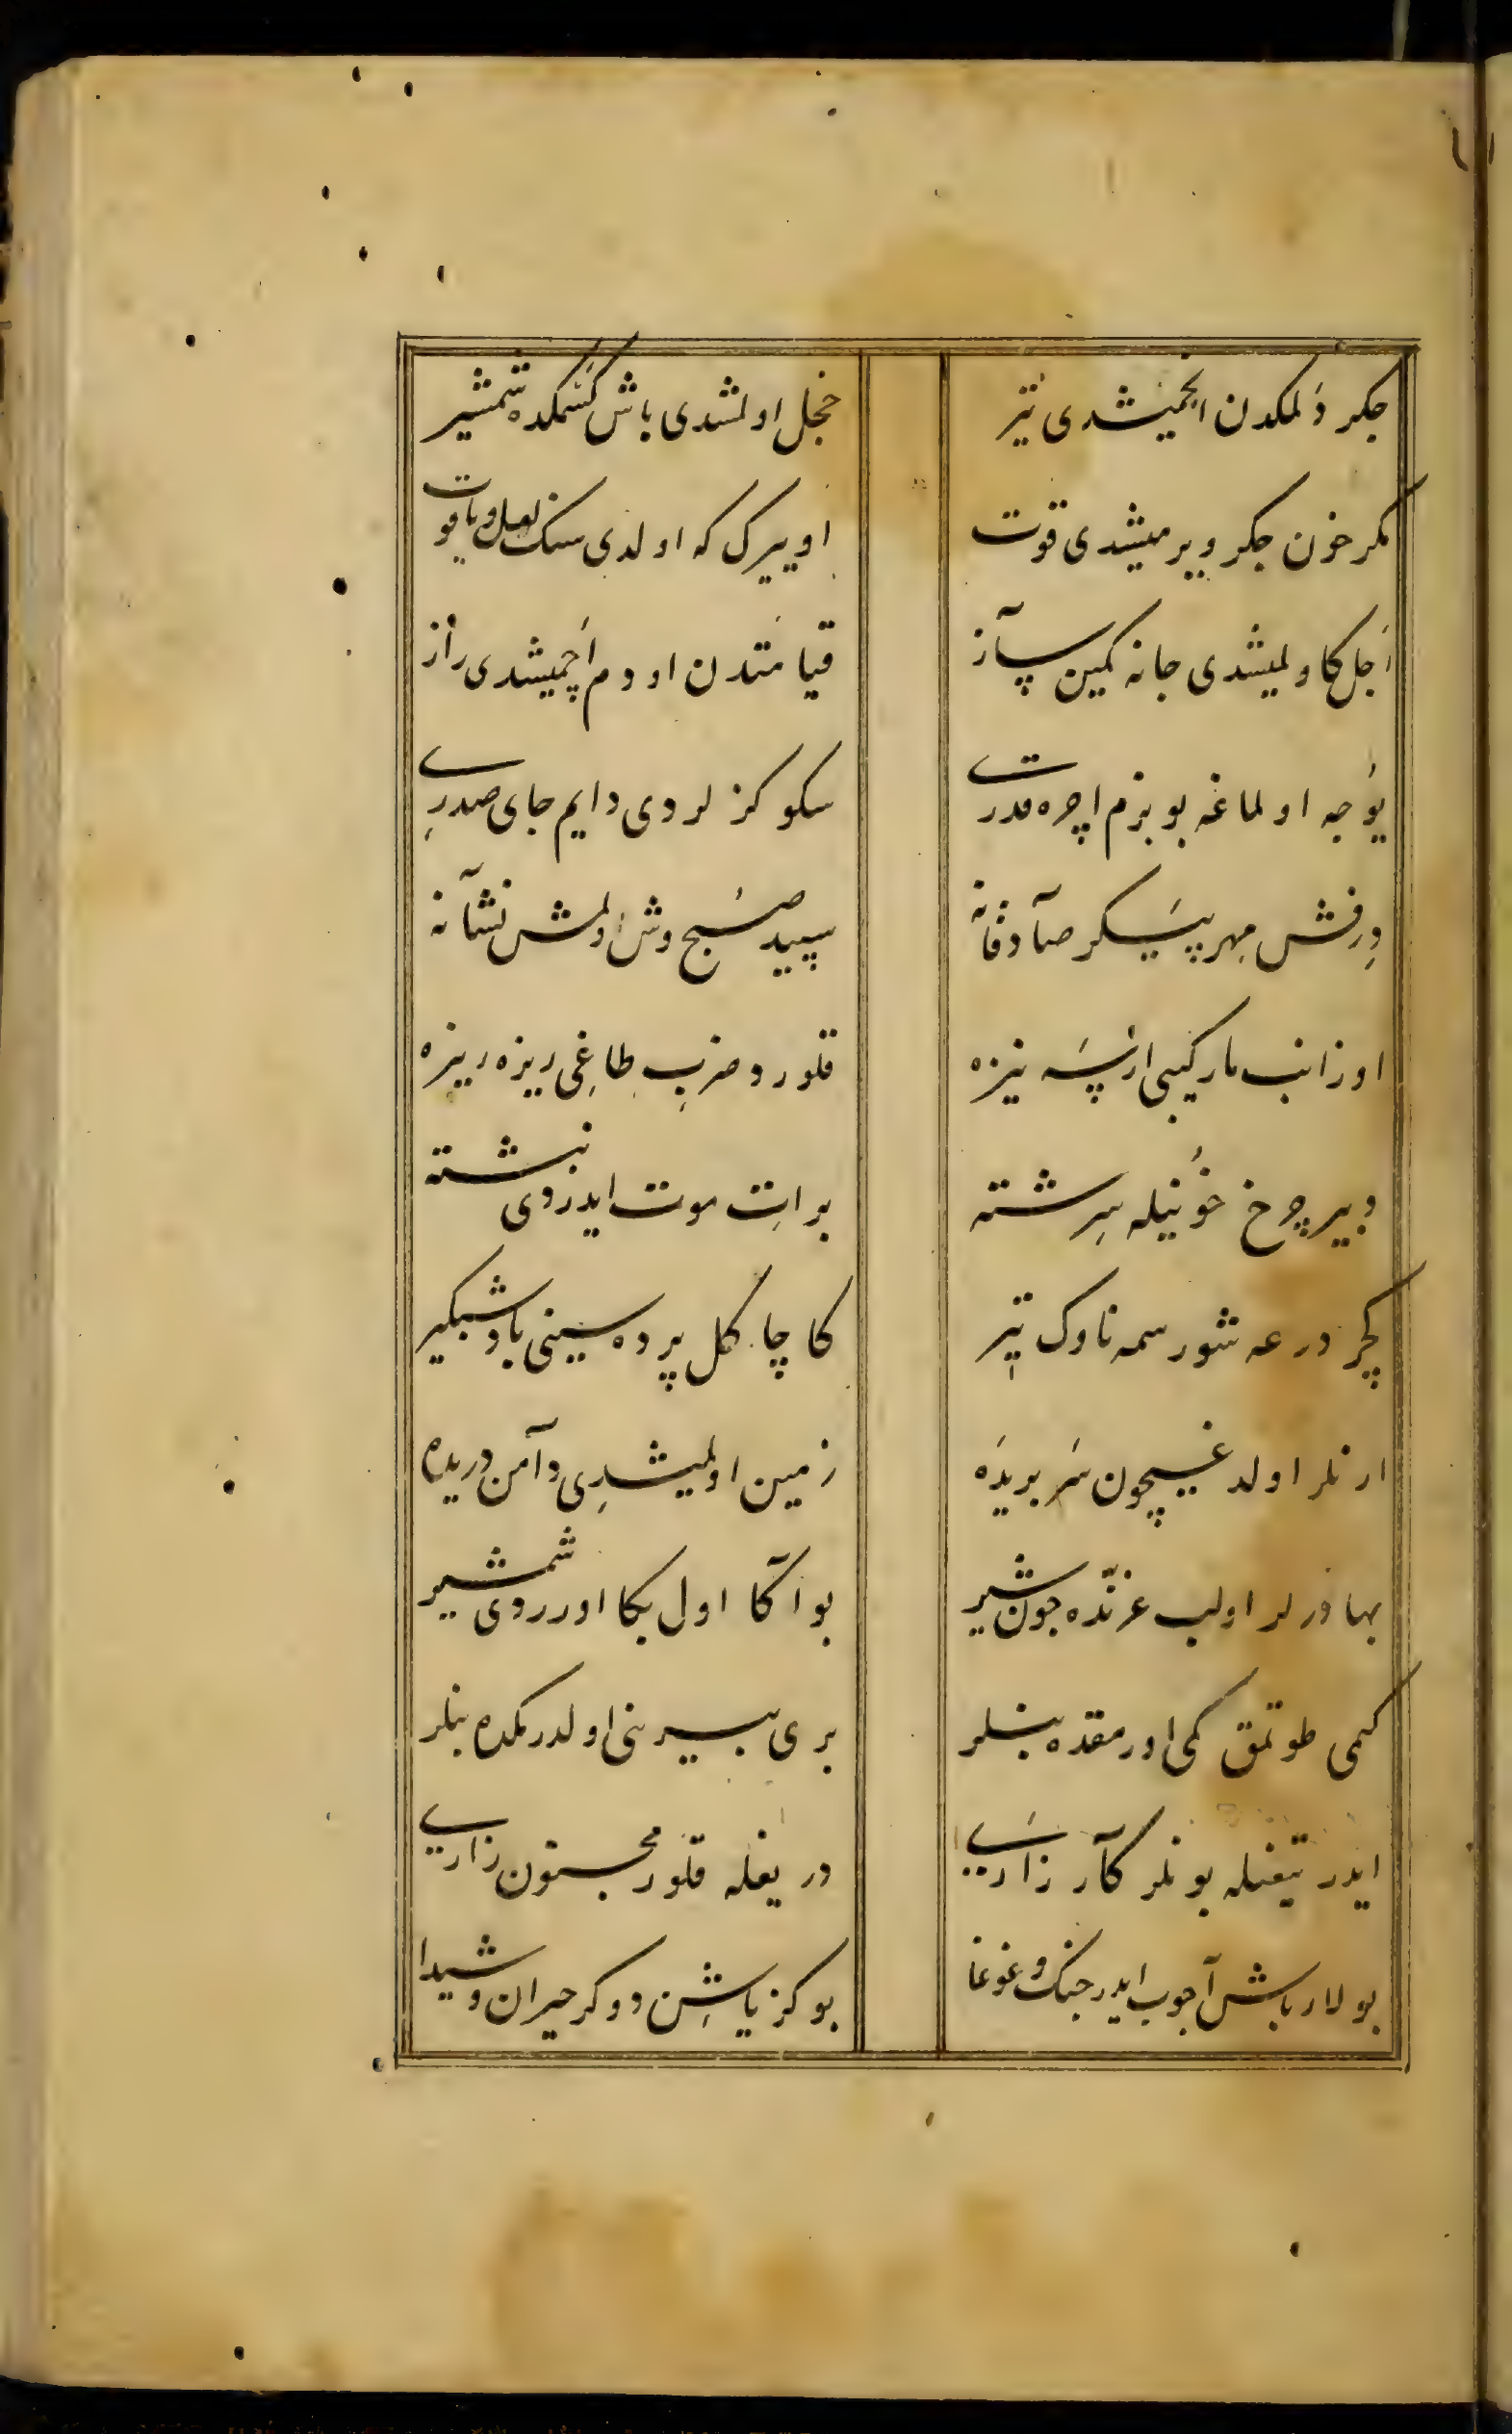 جكر دَلمكدن انجمیشدی تیر
خجل اولمشدی باش كسمكده شمشیر
مكر خون جكر ویرمیشدی قوت
او ییرك كه اولدی سنك لعل و یاقوت
اَجل كا ولمیشدی جانه كمین ساز
قیامتدن او دم اَچمیشدی راز
یُوجه اولماغه بو بزم اچره قدرت
سكو كزلردی دایم جای صدر
دِرفش مهر پیَكر صادقانه
سپید صُبح وش اولمش نشانه
اوزانب مار كیبی ارپَسه نیزه
قلور و ضربِ طاغِی ریزه ریزه
ویر چرخ خُونیله سِرشته
براتِ موت ایدردی نبشته
كچر درعه شور سمه ناوك تیر
كا چا كل پرده سینی باد شبكیر
ارنلر اولدغیچون سَر بریدَه
زمین اولمیشدِی دامن دریده
بهادرلر اولب غرنده چون شیر
بو اكا اول بكا اوردی شمشیر
كمی طوتمق كمی اورمقده بنلر
بری بیرنی اولدرمكده بنلر
ایدر تیغیله بونلر كارزاری
دریغله قلور محستون زاری
بولار باش آجوب ایدر جنك و غوغا
بو كز یاشِن دوكر حیران و شیدا